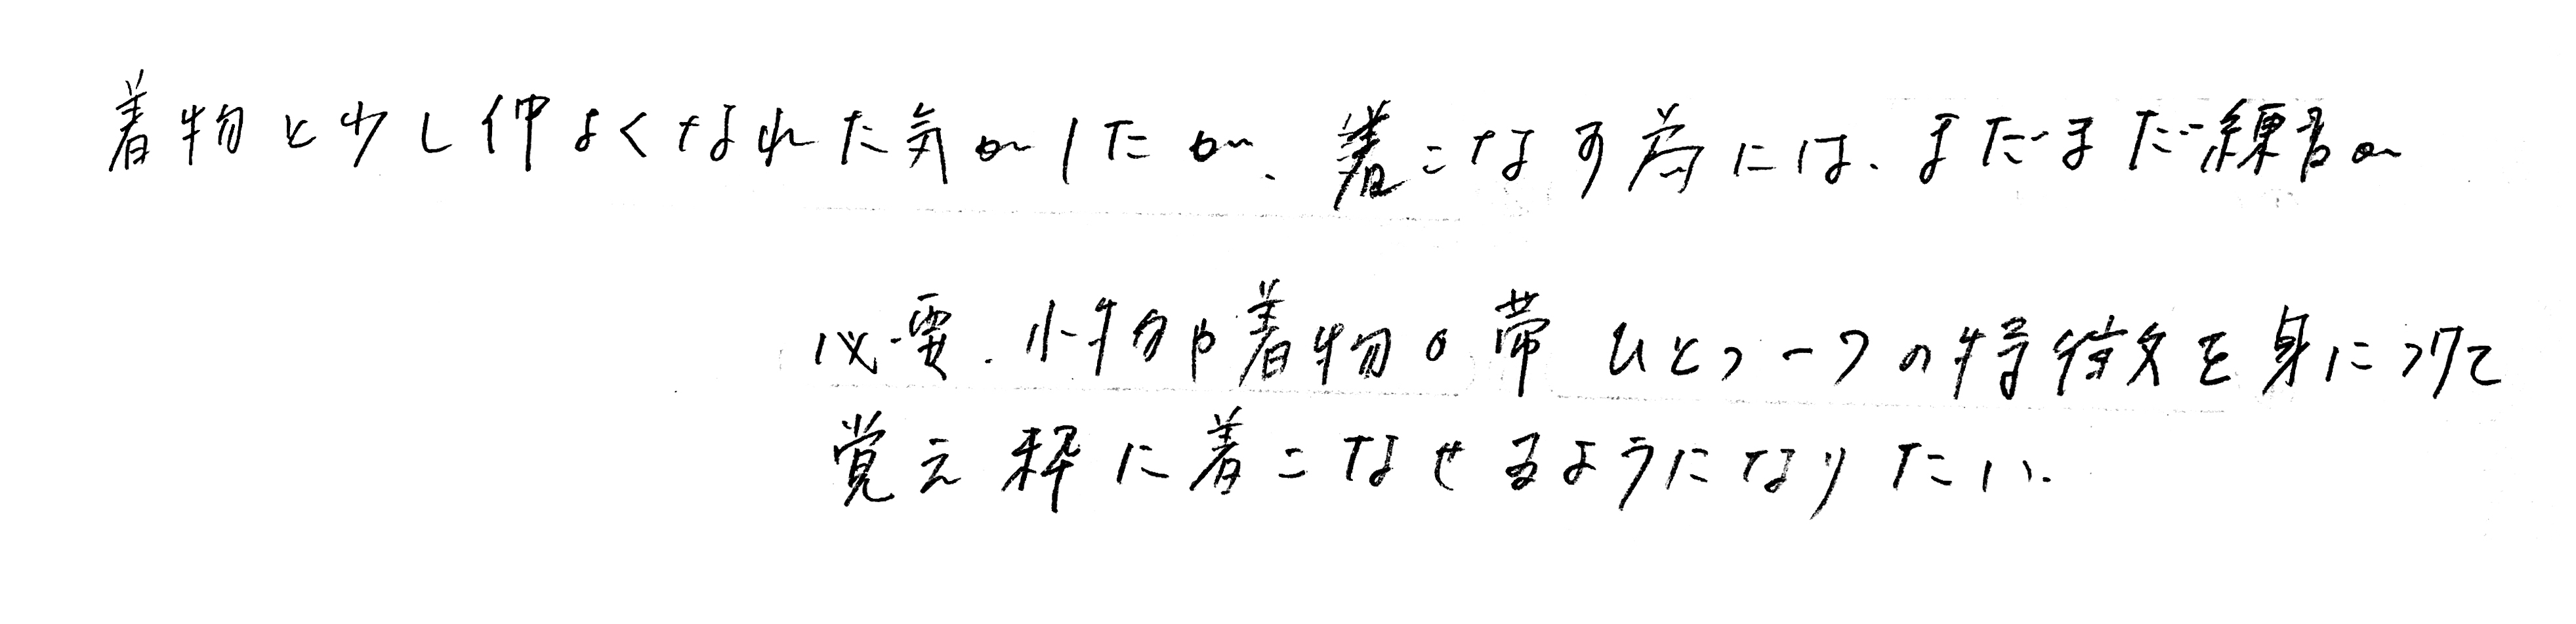 着物と少し仲よくなれた気がしたが、着こなす為には、まだまだ練習が
必要、小物や着物の帯ひとつ一つの特徴を身につけて
覚え粋に着こなせるようになりたい。